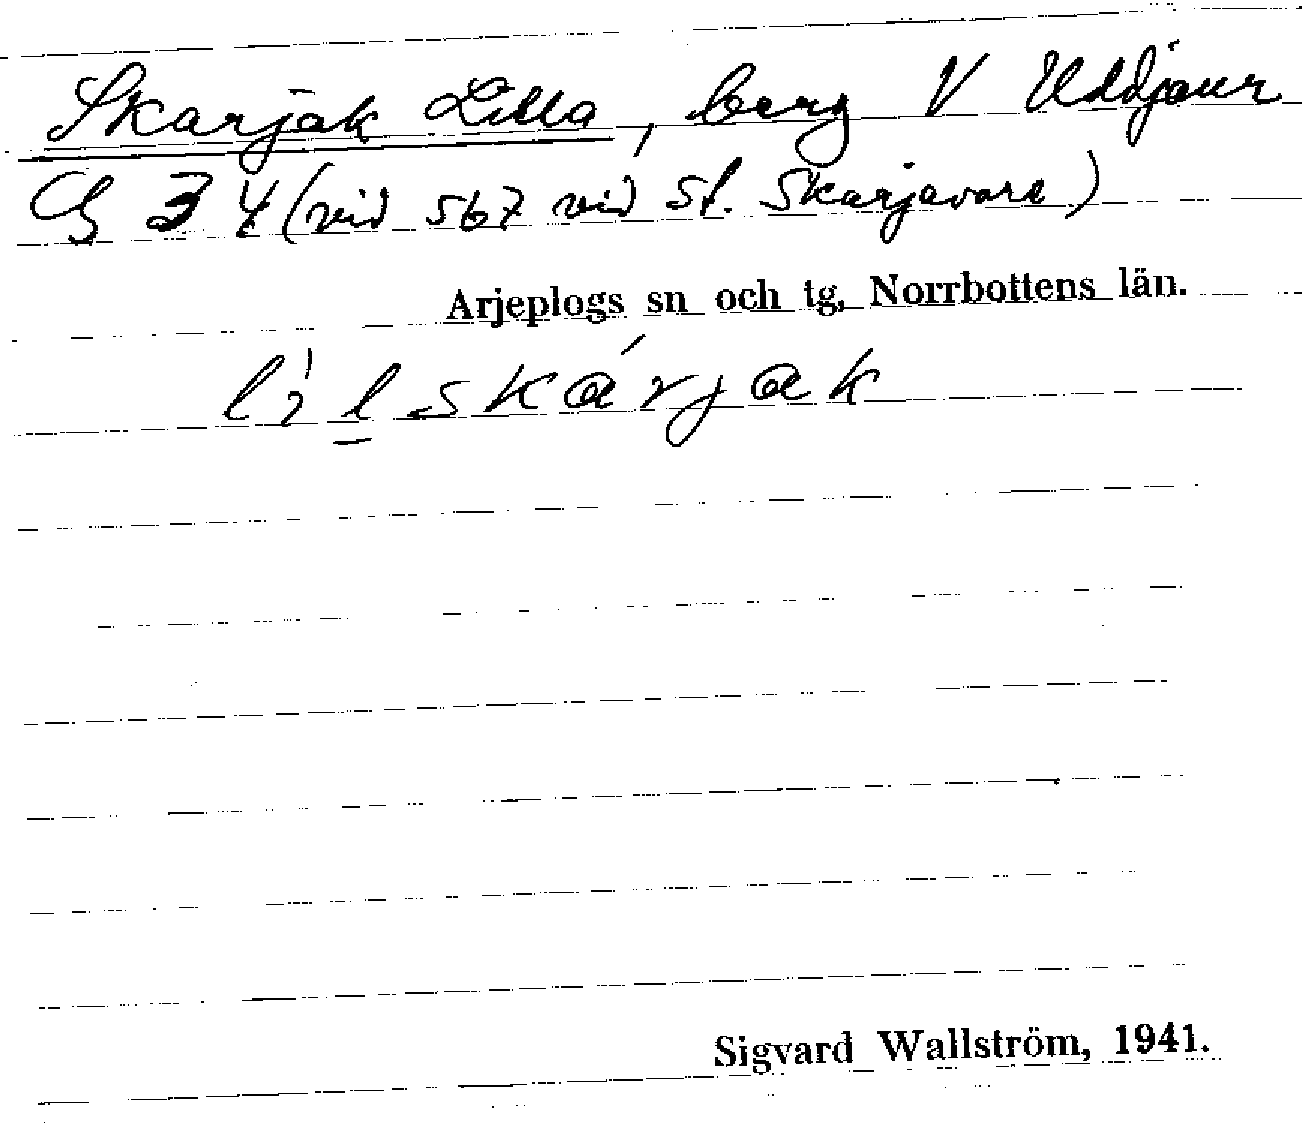 Skarjak Lilla, berg V Uddjaur
G 3 4 (vid 567 vid St. Skarjavare)
Arjeplogs sn och tg, Norrbottens län.
lìlskárjak
Sigvard Wallström, 1941.